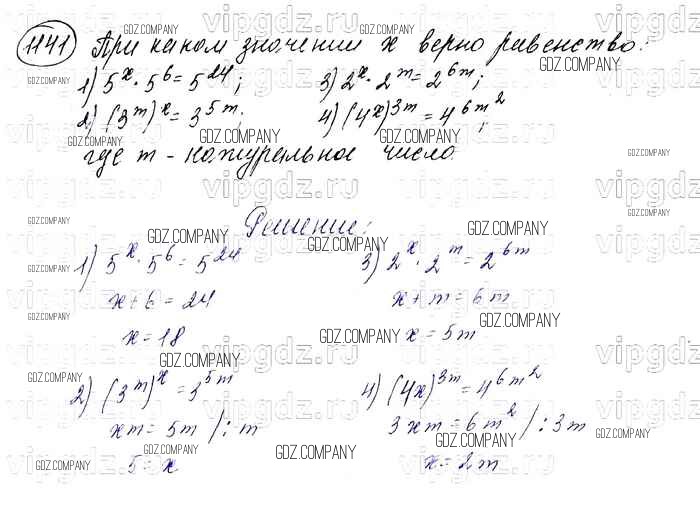 1141 При каком значении x верно равенство:
1) 5^x · 5^6 = 5^24; 3) 2^x · 2^m = 2^6m;
2) (3^m)^x = 3^5m; 4) (4x)^3m = 4^6m^2;
где m - натуральное число
Решение:
1) 5^x · 5^6 = 5^24 3) 2^x · 2^m = 2^6m
x + 6 = 24 x + m = 6m
x = 18 x = 5m
2) (3^m)^x = 3^5m 4) (4x)^3m = 4^6m^2
xm = 5m /: m 3xm = 6m^2 /: 3m
5 = x x = 2m
GDZ.COMPANY
vipgdz.ru